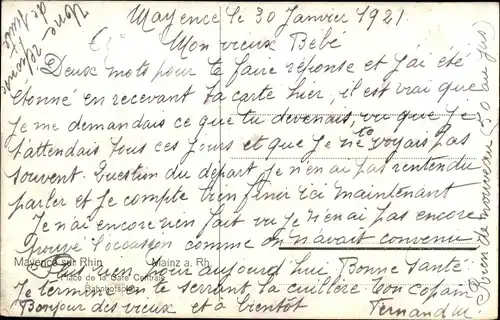 Votre réponse
de suite
Mayence le 30 Janvier 1921
Mon vieux Bébé
Deux mots pour te faire réponse et j'ai été
étonné en recevant ta carte hier, il est vrai que
je me demandais ce que tu devenais, vu que je
t'attendais tous ces jours et que je ne te voyais pas
souvent. Question du départ je n'en ai pas rentendu
parler et je compte bien finir ici maintenant
Je n'ai encore rien fait vu je n'en ai pas encore
trouvé l'occasion comme on n'avait convenu
Mayence sur Rhin Mainz a. Rh.
Place de la Gare Centrale
Bahnhofsplatz
Plus rien pour aujourd'hui Bonne Santé
Je termine en te serrant la cuillère ton copain
Bonjour des vieux et à bientôt Fernand M.
Rien de nouveau (50 au jus)